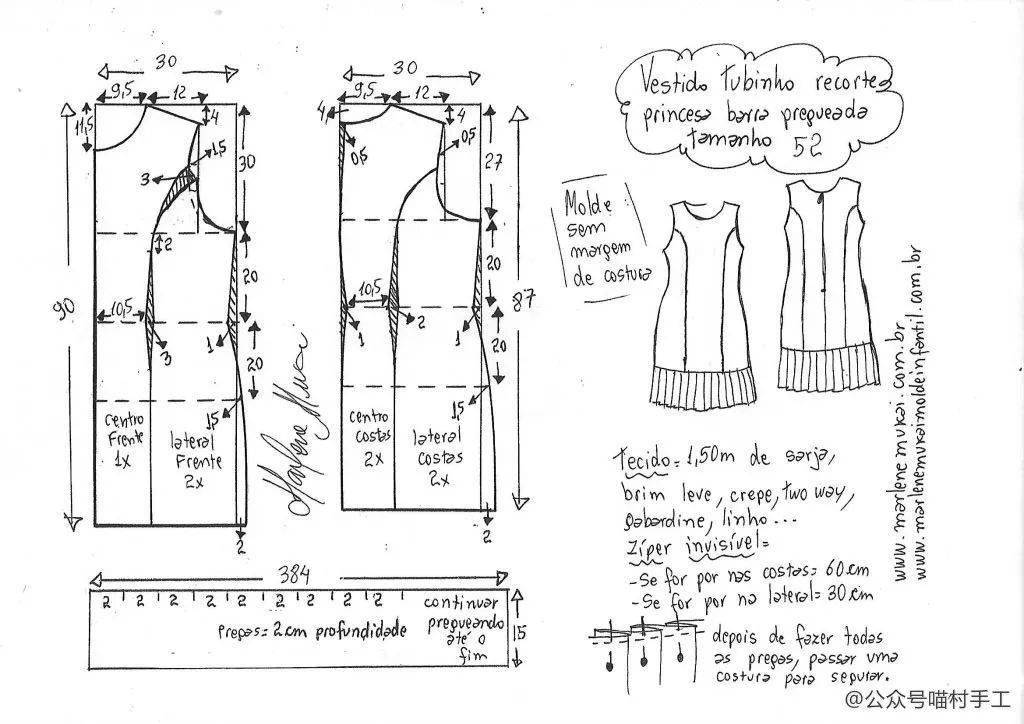 30
9,5 12
11,5
4
1,5
3
30
2
20
10,5
90
3
1
20
15
centro
Frente
1x
lateral
Frente
2x
2
30
9,5 12
4
4
0,5
0,5
27
20
10,5
87
1
2
1
20
1,5
centro
costas
2x
lateral
costas
2x
2
Vestido tubinho recortes
princesa barra pregueada
tamanho 52
Molde
sem
margem
de costura
www.marlenemukai.com.br
www.marlenemukaimoldeinfantil.com.br
Tecido = 1,50m de sarja,
brim leve, crepe, two way,
gabardine, linho...
Zíper invisível=
-Se for por nas costas= 60cm
-Se for por na lateral= 30cm
384
2 2 2 2 2 2 2 2 2
continuar
pregueando
até o
fim
15
Pregas= 2cm profundidade
depois de fazer todas
as pregas, passar uma
costura para segurar.
Marlene Mukai
@公众号喵村手工